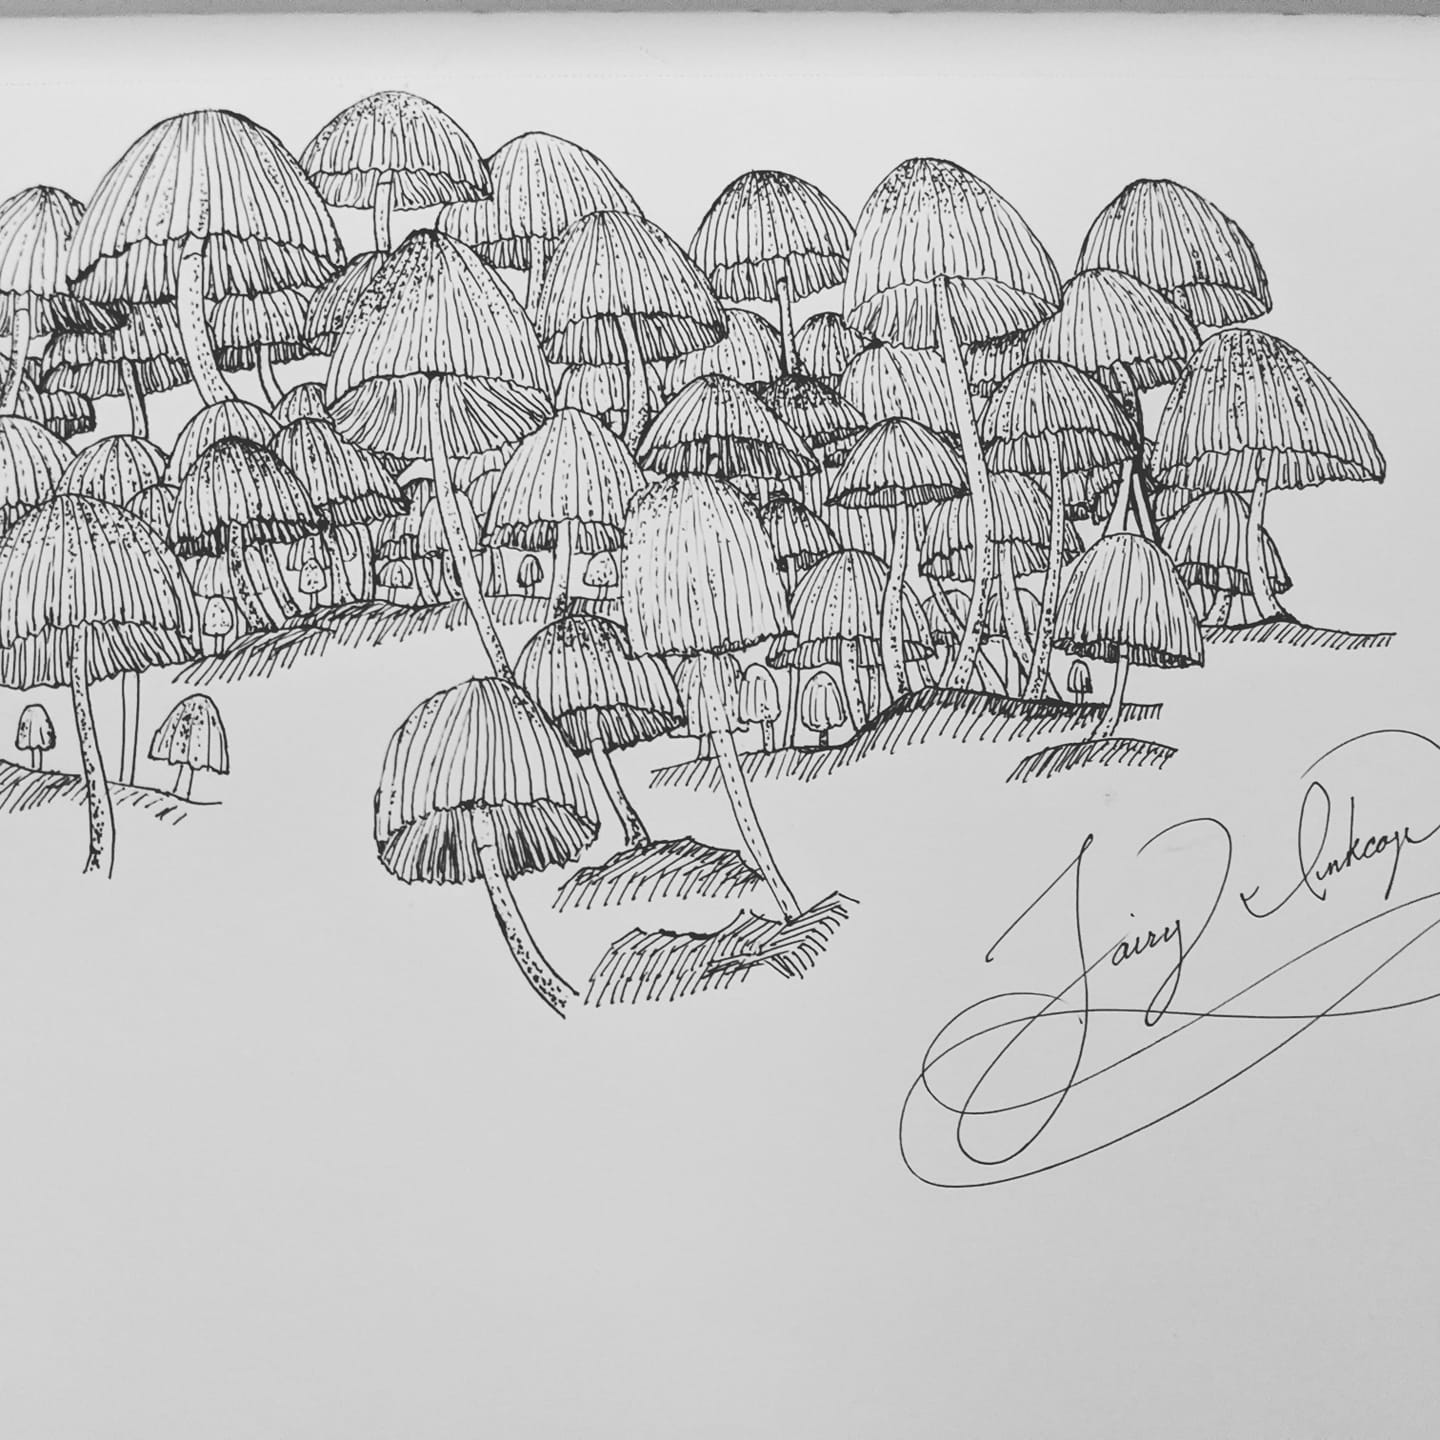 Fairy Inkcap